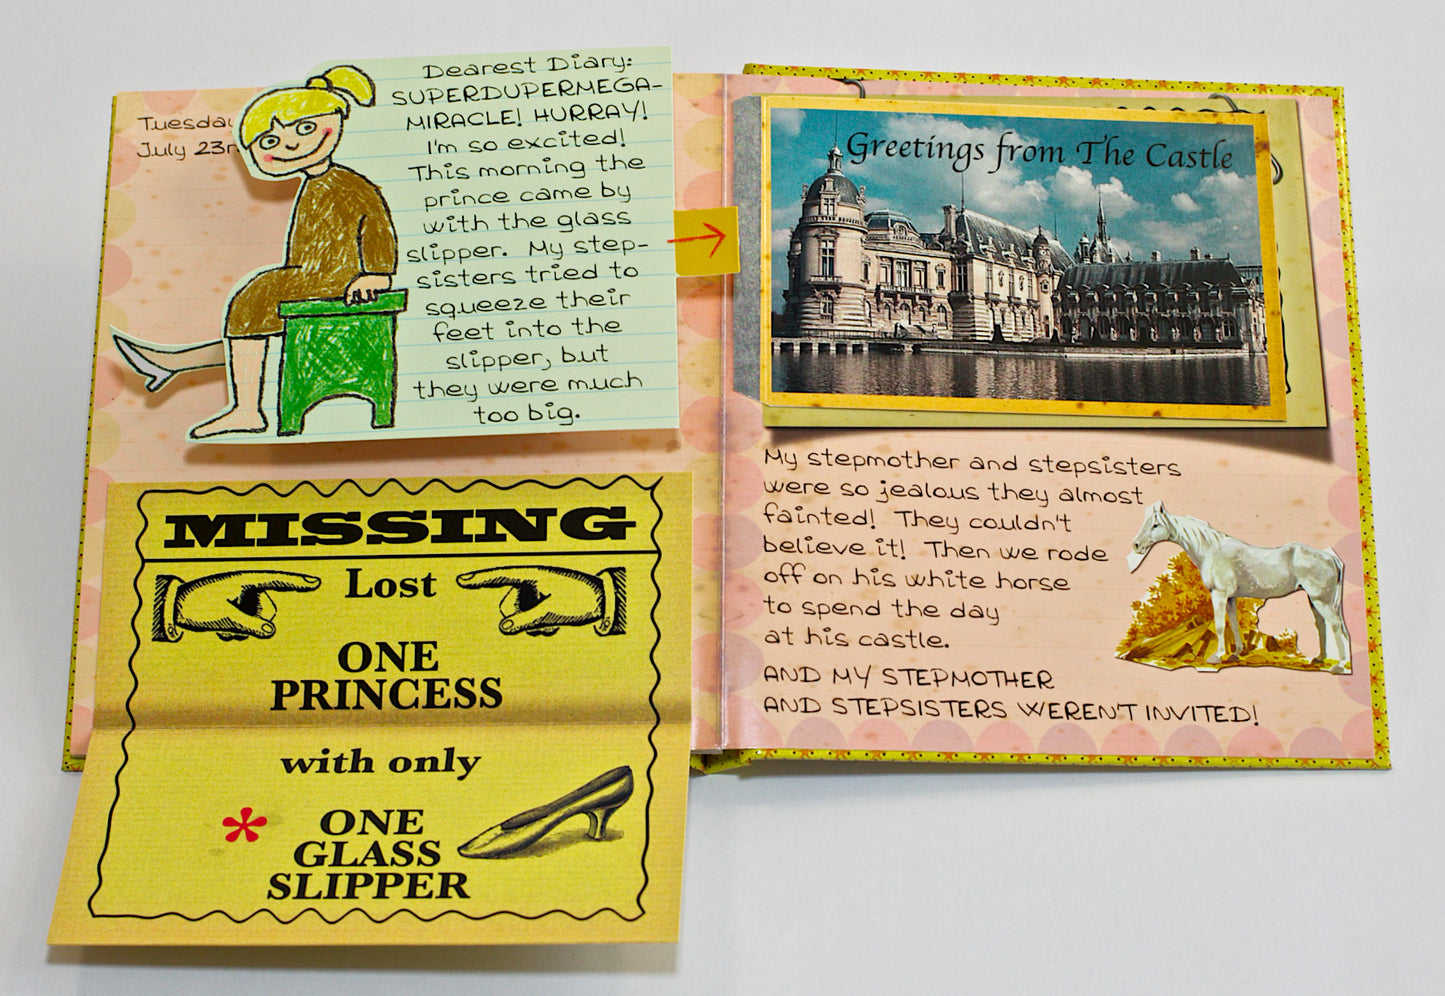 Tuesday
July 23r
Dearest Diary:
SUPERDUPERMEGA-
MIRACLE! HURRAY!
I'm so excited!
This morning the
prince came by
with the glass
slipper. My step-
sisters tried to
squeeze their
feet into the
slipper, but
they were much
too big.
MISSING
Lost
ONE
PRINCESS
with only
* ONE
GLASS
SLIPPER
Greetings from The Castle
My stepmother and stepsisters
were so jealous they almost
fainted! They couldn't
believe it! Then we rode
off on his white horse
to spend the day
at his castle.
AND MY STEPMOTHER
AND STEPSISTERS WEREN'T INVITED!